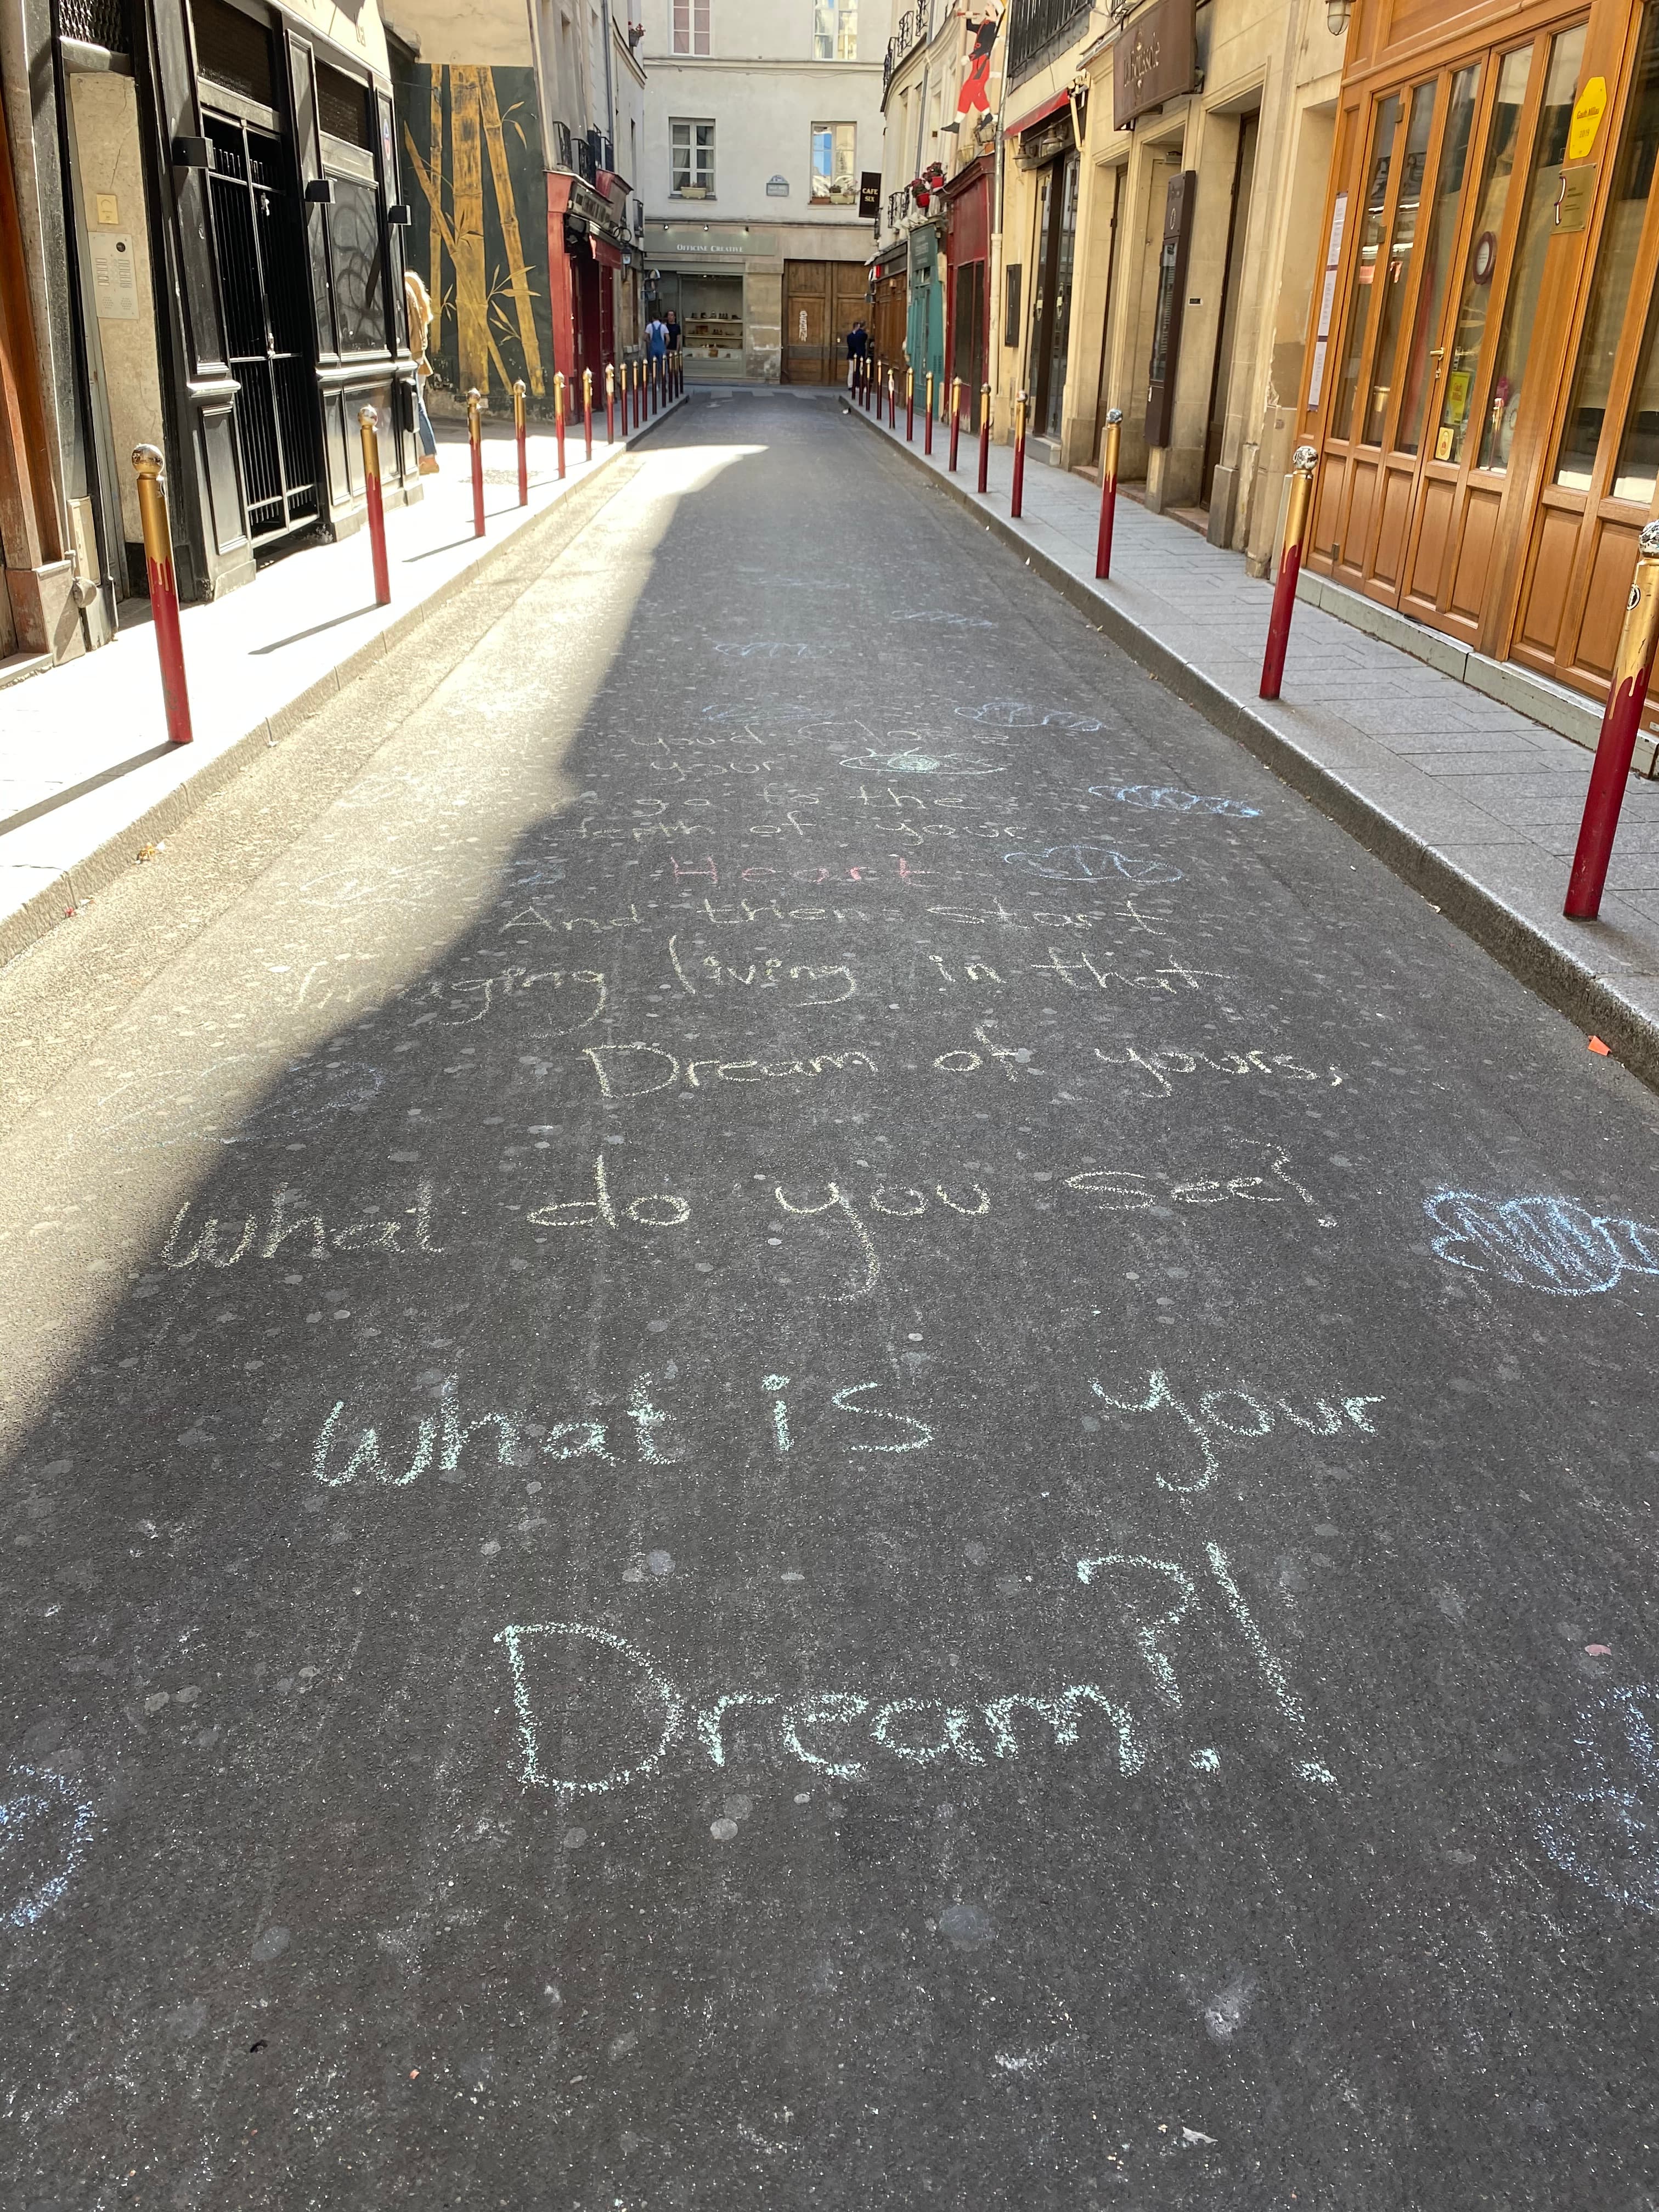 OFFICINE CREATIVE
CAFE
SIX
your
go to the
depth of your
Heart
And then start
Imaging living in that
Dream of yours,
What do you see?
What is your
Dream?!